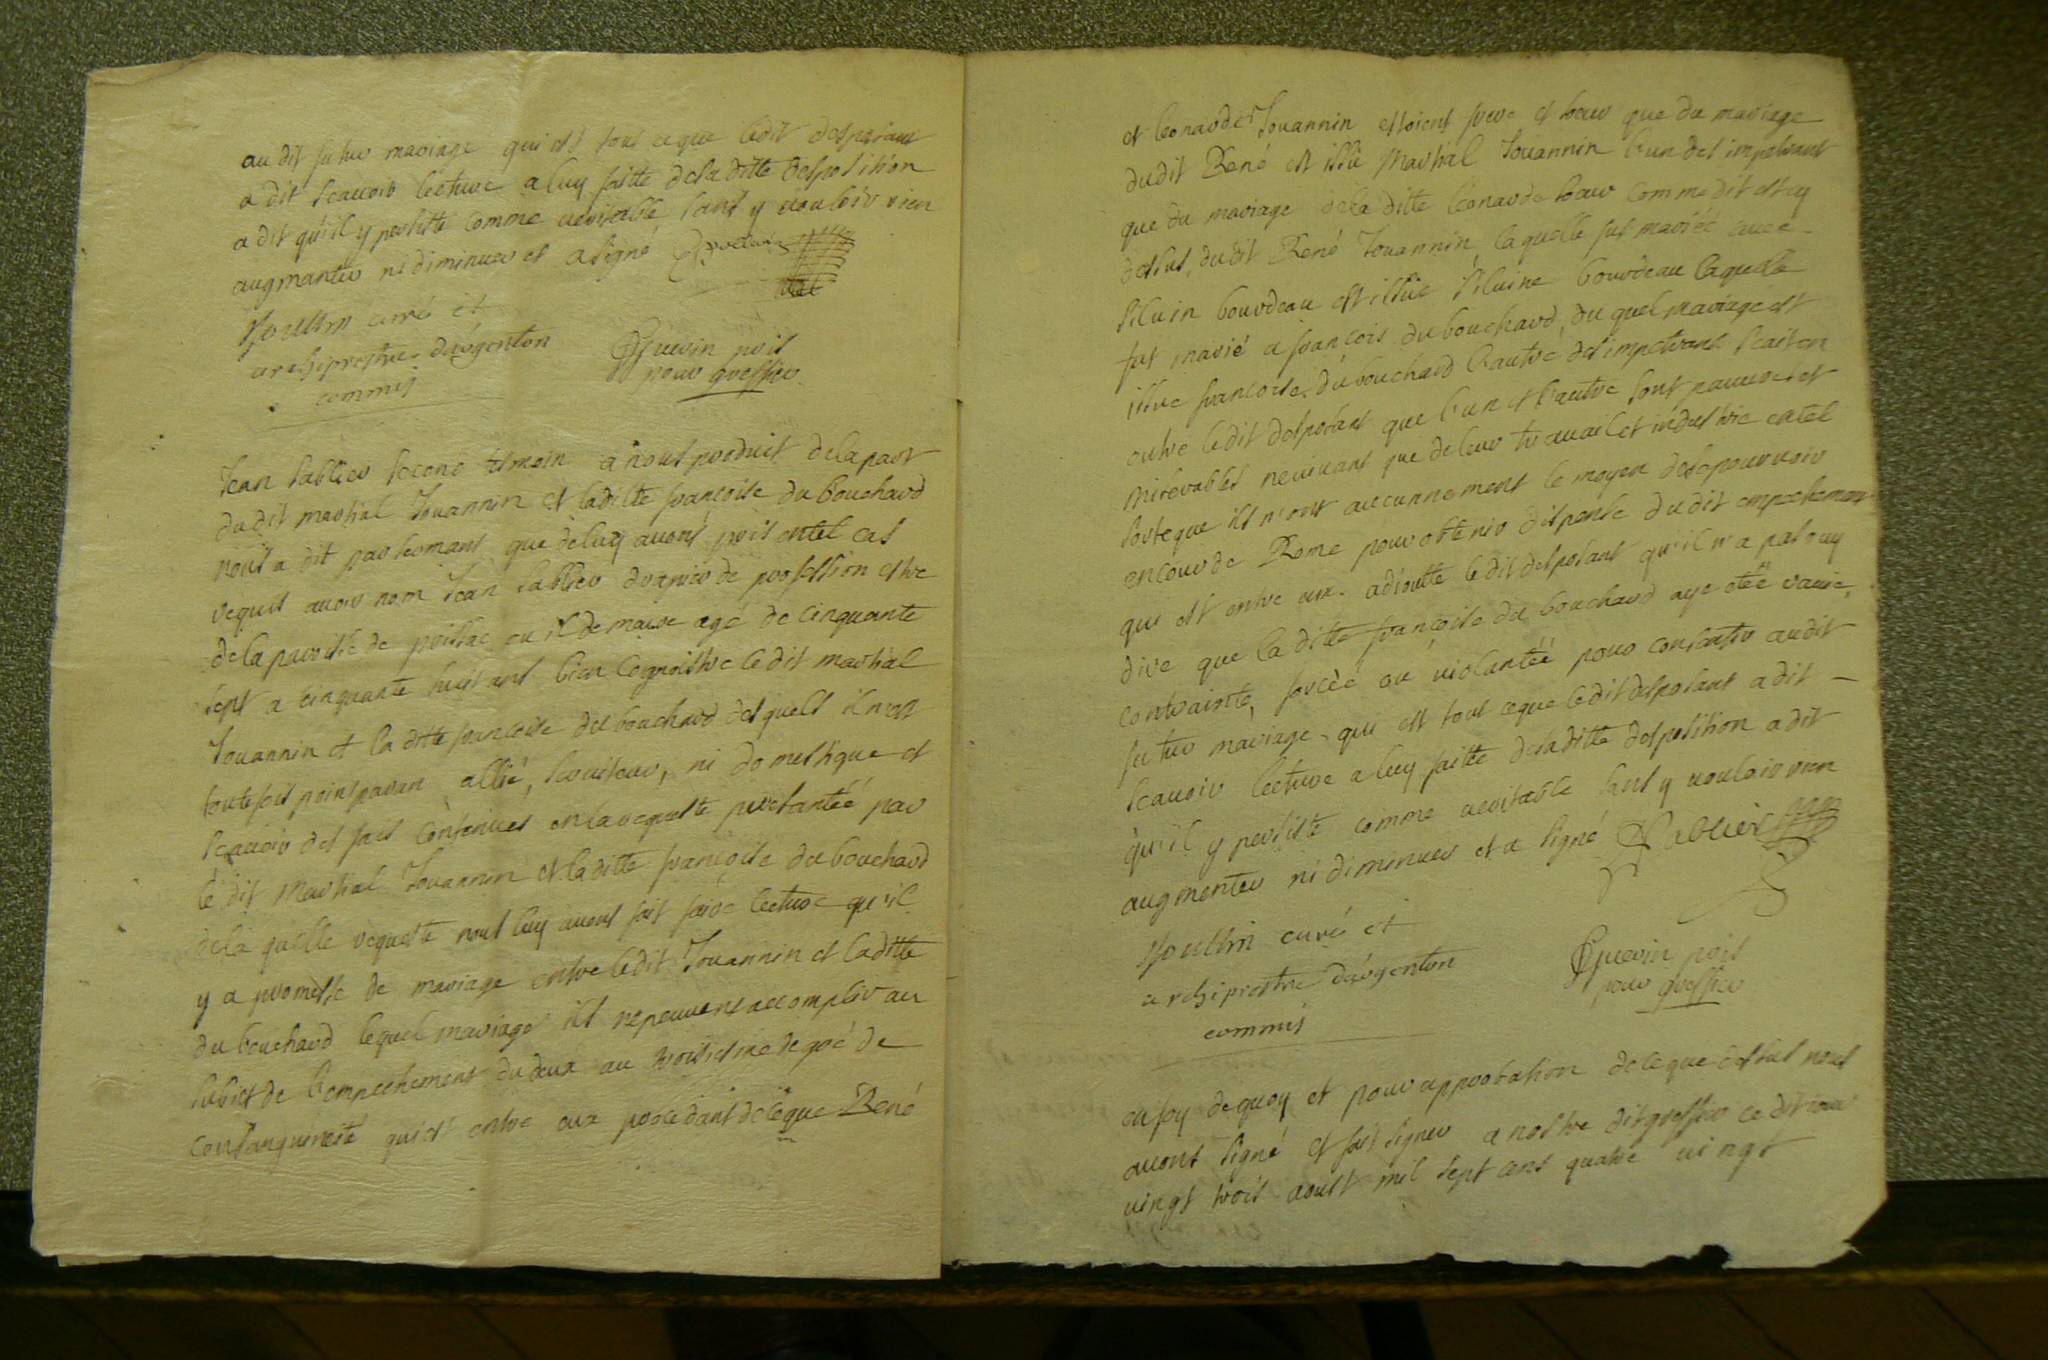 au dit futur mariage qui est tout ce que ledit desposant
a dit scauoir lecture a luy faitte de la ditte desposition
a dit qu'il y persiste comme veritable sans y vouloir rien
augmanter ni diminuer et a signé
curé et
archiprestre d'argenton
commis
Guerin pris
pour greffier
Jean Sablier second tesmoin a nous produit de la part
du dit martial Jouannin et laditte françoise du bouchaud
nous a dit par sermans que de luy auons pris en tel cas
requis auoir nom Jean Sablier de profession estre
de la paroisse de ou il demeure agé de cinquante
sept a cinquante huit ans bien cognoistre le dit martial
Jouannin et la ditte françoise du bouchaud desquels il n'est
toutefois point paran allié, seruiteur, ni domestique et
scauoir des fais contenues en la requeste presantéé par
le dit Martial Jouannin et laditte françoise du bouchaud
de la quelle requeste nous luy auons fait faire lecture qu'il
y a promesse de mariage entre ledit Jouannin et laditte
du bouchaud lequel mariage ils ne peuuent accomplir au
subiet de l'empechement du deux au troisiesme degré de
consanguinité qui est entre eux procedant de ce que René
et leonarde Jouannin estoient frere et soeur que du mariage
dudit René est issu Martial Jouannin l'un des impetrant
que du mariage de la ditte leonarde soeur comme dit est cy
dessus, du dit René Jouannin, laquelle fut mariéé auec
Siluin bourdeau est issüe Siluine bourdeau laquelle
fut marié a françois du bouchaud, du quel mariage est
issue françoise du bouchaud l'autre des impetrans scait en
outre le dit desposant que l'un et l'autre sont pauures et
miserables ne viuans que de leur trauail et industrie en tel
sorte que ils n'ont aucunnement le moyen de se pouruoir
en cour de Rome pour obtenir dispense du dit empechement
qui est entre eux. adioutte le dit desposant qu'il n'a pas ouy
dire que la ditte françoise du bouchaud aye etéé rauie,
contrainte, forcéé ou violantéé pour consentir audit
futur mariage, qui est tout ce que le dit desposant a dit
scauoir lecture a luy faitte de la ditte desposition a dit
qu'il y persiste comme veritable sans y vouloir rien
augmenter ni diminuer et a signé Sablier
curé et
archiprestre d'argenton
commis
Guerin pris
pour greffier
en foy de quoy et pour approbation de ce que dessus nous
auons signé et fait signer a nostre dit greffier ce dit iour
vingt trois aoust mil sept cens quatre vingt